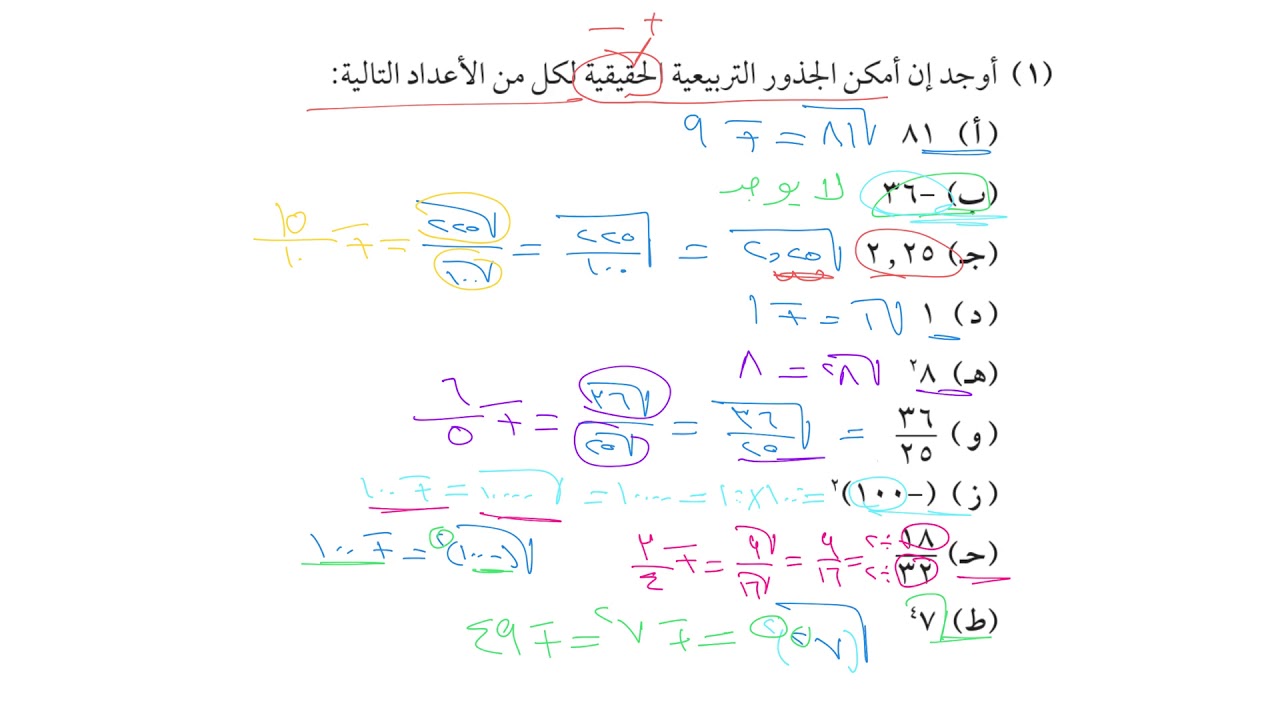 + −
(١) أوجد إن أمكن الجذور التربيعية الحقيقية لكل من الأعداد التالية:
(أ) ٨١ √٨١ = ∓ ٩
(ب) −٣٦ لا يوجد
(جـ) ٢,٢٥ √٢,٢٥ = √(٢٢٥/١٠٠) = √٢٢٥/√١٠٠ = ∓ ١٥/١٠
(د) ١ √١ = ∓ ١
(هـ) ٨² √٨² = ٨
(و) ٣٦/٢٥ = √(٣٦/٢٥) = √٣٦/√٢٥ = ∓ ٦/٥
(ز) (−١٠٠)² = ١٠٠×١٠٠ = ١٠٠٠٠ = √١٠٠٠٠ = ∓ ١٠٠
√(−١٠٠)² = ∓ ١٠٠
(حـ) ١٨/٣٢ ÷٢/÷٢ = ٩/١٦ = √٩/√١٦ = ∓ ٣/٤
(ط) ٧⁴ √(٧²)² = ∓ ٧² = ∓ ٤٩